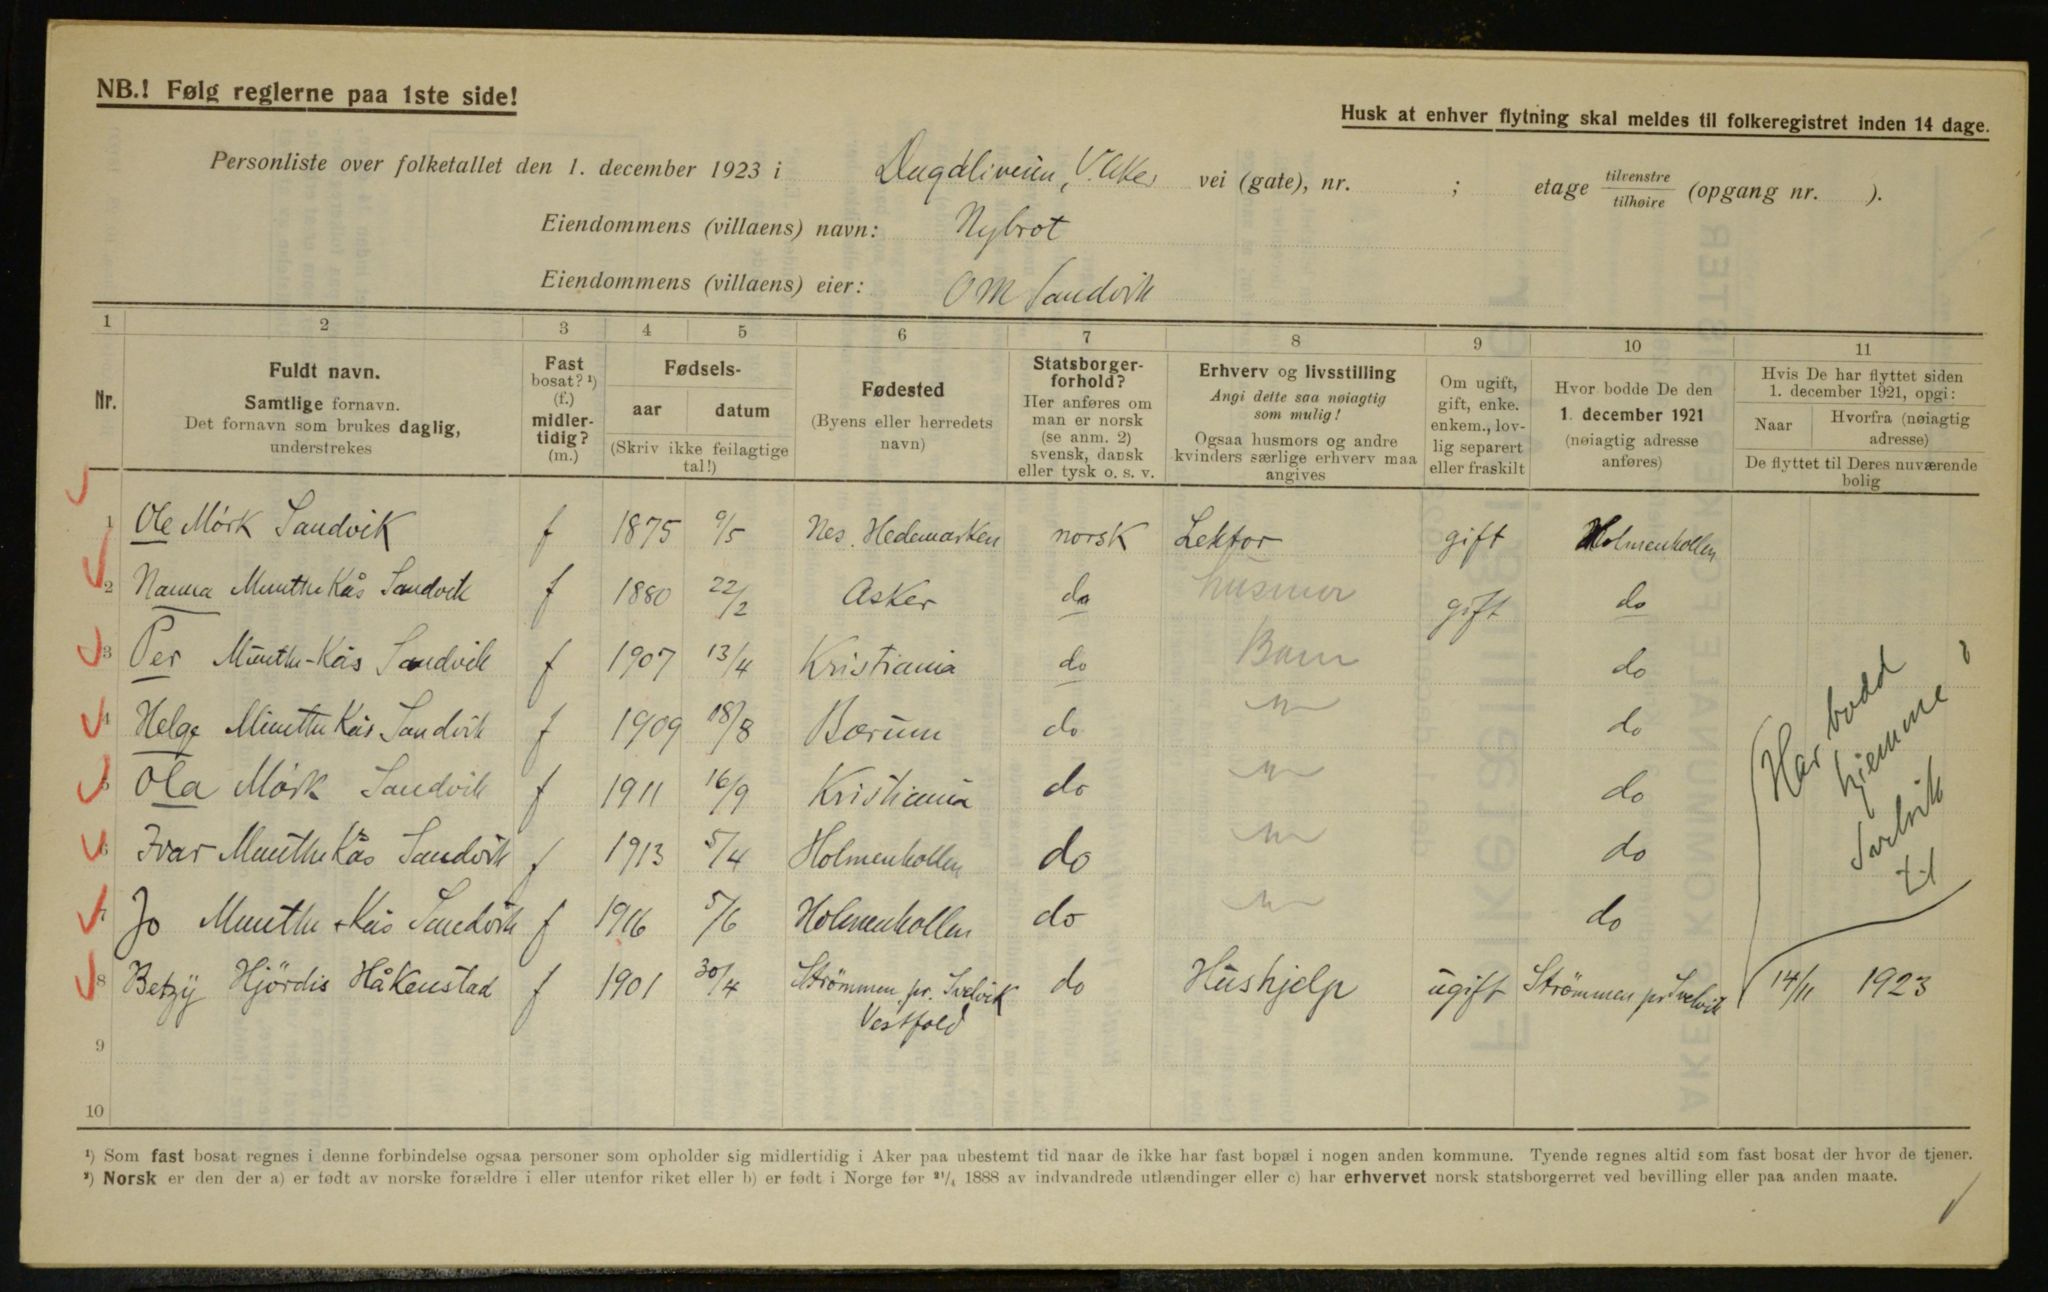 NB.! Følg reglerne paa 1ste side!
Husk at enhver flytning skal meldes til folkeregistret inden 14 dage.
Personliste over folketallet den 1. december 1923 i V. Aker vei (gate), nr. ; etage tilvenstre tilhøire (opgang nr. ).
Eiendommens (villaens) navn: Nybrot
Eiendommens (villaens) eier: O M Sandvik
1 2 3 4 5 6 7 8 9 10 11
Nr.
Fuldt navn.
Samtlige fornavn.
Det fornavn som brukes daglig,
understrekes
Fast
bosat? ¹)
(f.)
midler-
tidig?
(m.)
Fødsels-
aar datum
(Skriv ikke feilagtige
tal!)
Fødested
(Byens eller herredets
navn)
Statsborger-
forhold?
Her anføres om
man er norsk
(se anm. 2)
svensk, dansk
eller tysk o. s. v.
Erhverv og livsstilling
Angi dette saa nøiagtig
som mulig!
Ogsaa husmors og andre
kvinders særlige erhverv maa
angives
Om ugift,
gift, enke.
enkem., lov-
lig separert
eller fraskilt
Hvor bodde De den
1. december 1921
(nøiagtig adresse
anføres)
Hvis De har flyttet siden
1. december 1921, opgi:
Naar Hvorfra (nøiagtig
adresse)
De flyttet til Deres nuværende
bolig
1 Ole Mørk Sandvik f 1875 /5 Nes. Hedemarken norsk Lektor gift Holmenkollen
2 Nanna Munthe Kås Sandvik f 1880 22/2 Asker do husmor gift do
3 Per Munthe-Kås Sandvik f 1907 13/4 Kristiania do Barn do
4 Helge Munthe Kås Sandvik f 1909 18/8 Bærum do " do
5 Ola Mørk Sandvik f 1911 16/9 Kristiania do " do
6 Ivar Munthe Kås Sandvik f 1913 5/4 Holmenkollen do " do
7 Jo Munthe-Kås Sandvik f 1916 5/6 Holmenkollen do " do
8 Betzy Hjördis Håkenstad f 1901 30/4 Strömmen pr. Svelvik Vestfold do Hushjelp ugift Strömmen pr Svelvik 14/11 1923
Har bodd
hjemme i
Svelvik
til
9
10
¹) Som fast bosat regnes i denne forbindelse ogsaa personer som opholder sig midlertidig i Aker paa ubestemt tid naar de ikke har fast bopæl i nogen anden kommune. Tyende regnes altid som fast bosat der hvor de tjener.
²) Norsk er den der a) er født av norske forældre i eller utenfor riket eller b) er født i Norge før ²¹/₄ 1888 av indvandrede utlændinger eller c) har erhvervet norsk statsborgerret ved bevilling eller paa anden maate.